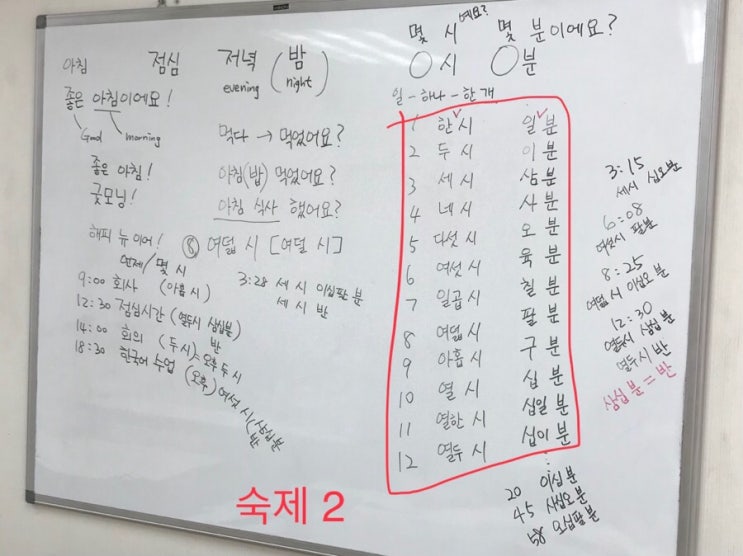 아침 점심 저녁 (밤)
evening night
좋은 아침이에요!
Good morning
먹다 → 먹었어요?
좋은 아침!
아침(밥) 먹었어요?
굿모닝!
아침 식사 했어요?
해피 뉴 이어!
⑧ 여덟 시 [여덜 시]
언제/몇 시
9:00 회사 (아홉 시)
3:28 세 시 이십팔 분
세 시 반
12:30 점심시간 (열두시 삼십분)
반
14:00 회의 (두 시) 오후 두 시
18:30 한국어 수업 (오후) 여섯 시 삼십분
반
몇 시예요? 몇 분이에요?
○시 ○분
일 - 하나 - 한 개
1 한 시 일 분
2 두 시 이 분
3 세 시 삼 분
4 네 시 사 분
5 다섯 시 오 분
6 여섯 시 육 분
7 일곱 시 칠 분
8 여덟 시 팔 분
9 아홉 시 구 분
10 열 시 십 분
11 열한 시 십일 분
12 열두 시 십이 분
20 이십 분
45 사십오 분
58 오십팔 분
3:15
세시 십오분
6:08
여섯시 팔분
8:25
여덟 시 이십오 분
12:30
열두시 삼십 분
열두시 반
삼십 분 = 반
숙제 2